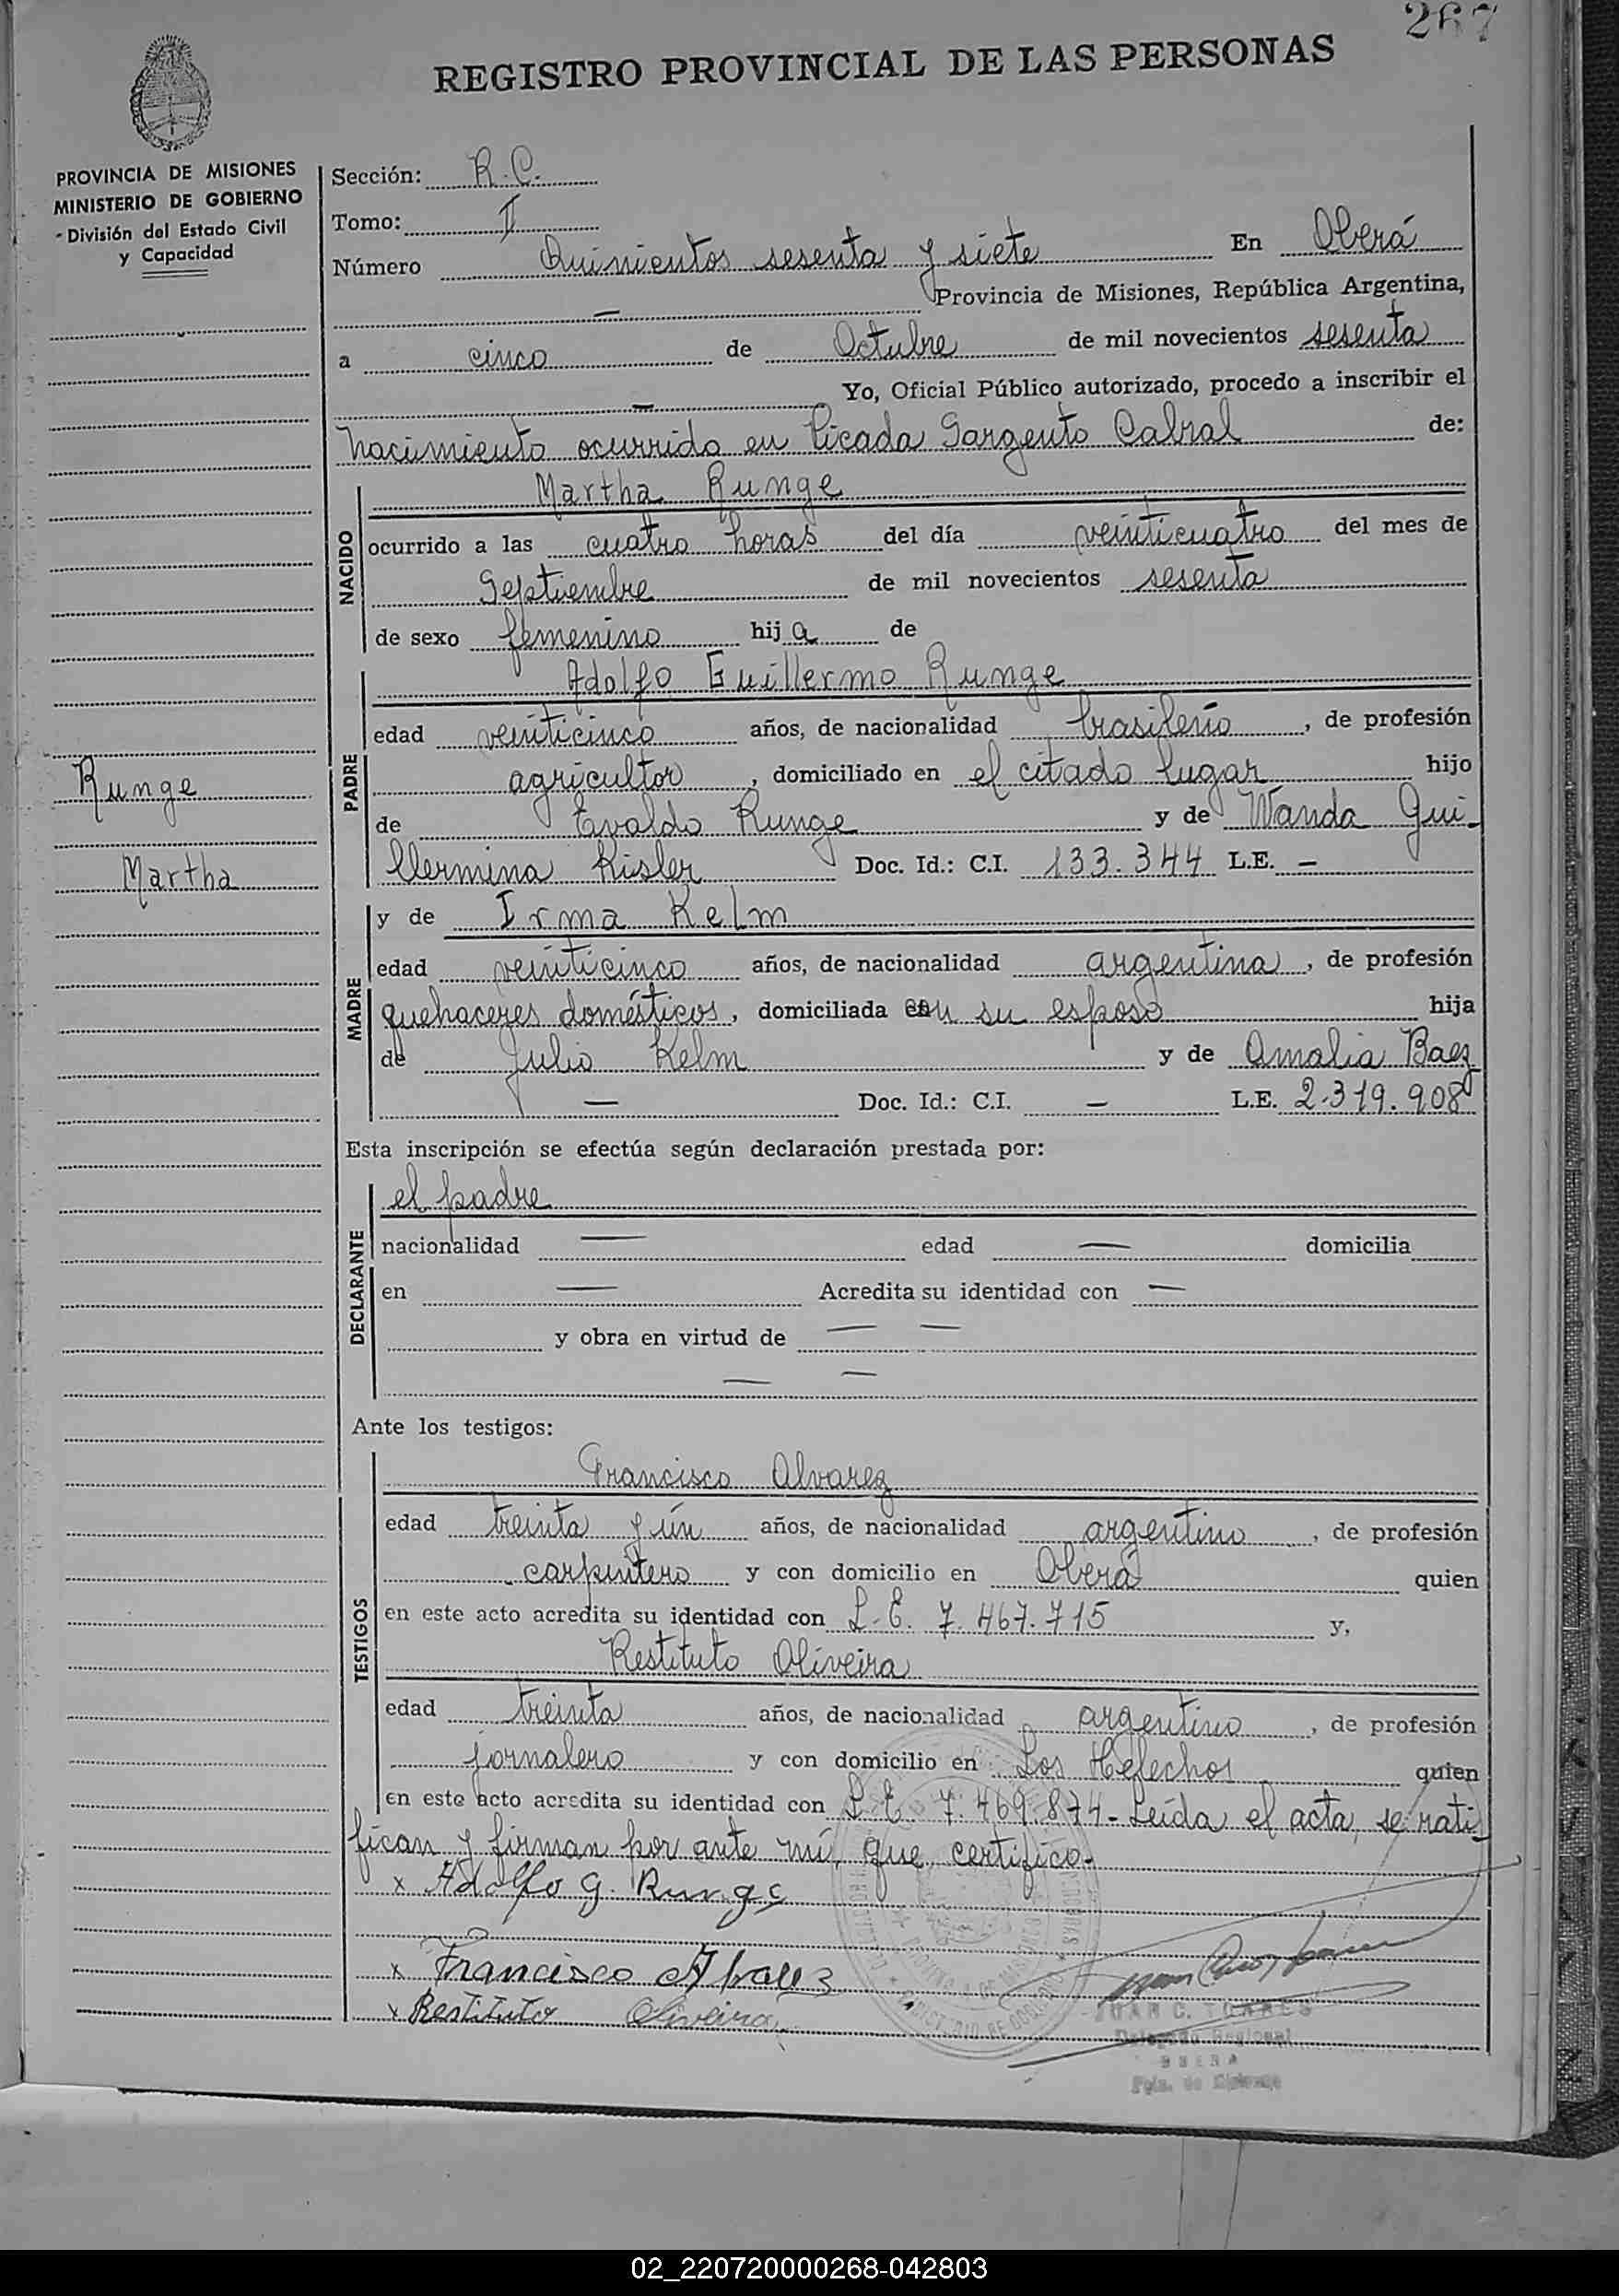 267
REGISTRO PROVINCIAL DE LAS PERSONAS
PROVINCIA DE MISIONES
MINISTERIO DE GOBIERNO
- División del Estado Civil
y Capacidad
Sección: R.C.
Tomo: II
Número Quinientos sesenta y siete En Oberá
— Provincia de Misiones, República Argentina,
a cinco de Octubre de mil novecientos sesenta
— Yo, Oficial Público autorizado, procedo a inscribir el
nacimiento ocurrido en Picada Sargento Cabral de:
NACIDO
Martha Runge
ocurrido a las cuatro horas del día veinticuatro del mes de
Septiembre de mil novecientos sesenta
de sexo femenino hija de
PADRE
Adolfo Guillermo Runge
edad veinticinco años, de nacionalidad brasileño, de profesión
agricultor, domiciliado en el citado lugar hijo
de Evaldo Runge y de Wanda Gui-
llermina Kisler Doc. Id.: C.I. 133.344 L.E. —
Runge
Martha
MADRE
y de Irma Kelm
edad veinticinco años, de nacionalidad argentina, de profesión
quehaceres domésticos, domiciliada con su esposo hija
de Julio Kelm y de Amalia Baez
— Doc. Id.: C.I. — L.E. 2.319.908
Esta inscripción se efectúa según declaración prestada por:
DECLARANTE
el padre
nacionalidad — edad — domicilia
en — Acredita su identidad con —
y obra en virtud de — —
— —
Ante los testigos:
TESTIGOS
Francisco Alvarez
edad treinta y ún años, de nacionalidad argentino, de profesión
carpintero y con domicilio en Oberá quien
en este acto acredita su identidad con L.E. 7.467.715 y,
Restituto Oliveira
edad treinta años, de nacionalidad argentino, de profesión
jornalero y con domicilio en Los Helechos quien
en este acto acredita su identidad con L.E. 7.469.874- Leída el acta, se rati-
fican y firman por ante mí, que certifico.-
x Adolfo G. Runge
x Francisco Alvarez
x Restituto Oliveira
JUAN C. TORRES
Delegado Regional
OBERA
Pcia. de Misiones
02_220720000268-042803